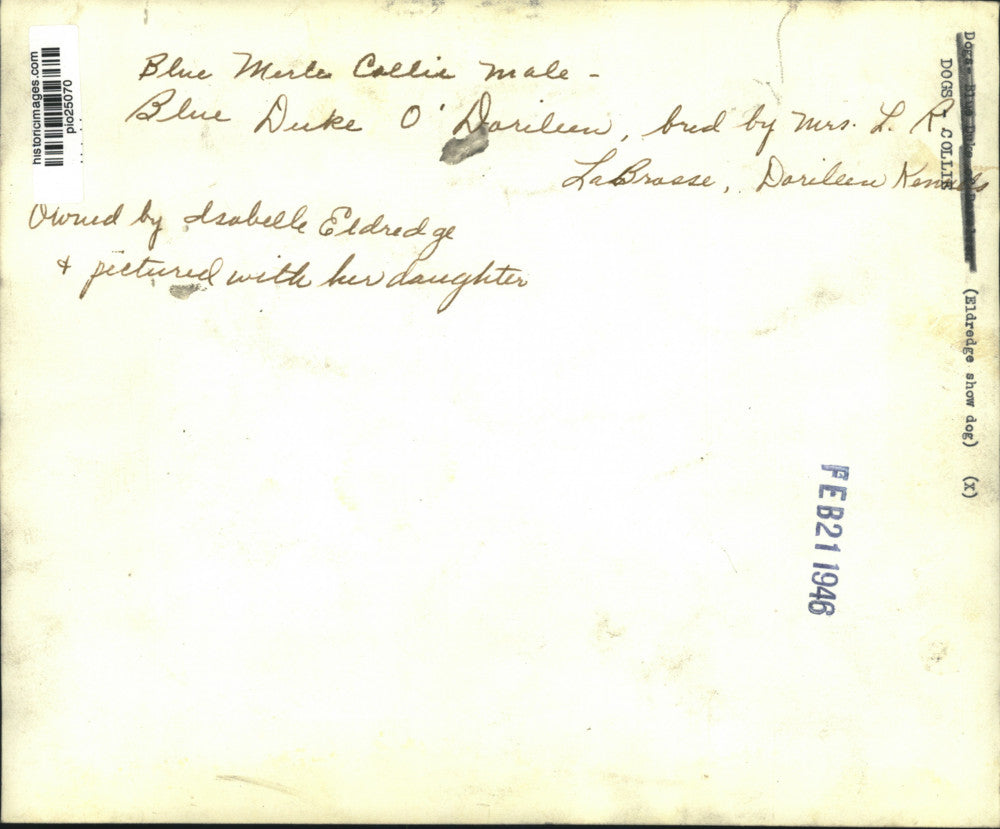 historicimages.com
pio25070
Blue Merle Collie male -
Blue Duke O' Dorileen, bred by Mrs. L. R.
LaBrosse, Dorileen Kennels
Owned by Isabelle Eldredge
+ pictured with her daughter
Dogs - Blue Duke
(Eldredge show dog) (x)
DOGS - COLLIE
FEB 21 1946